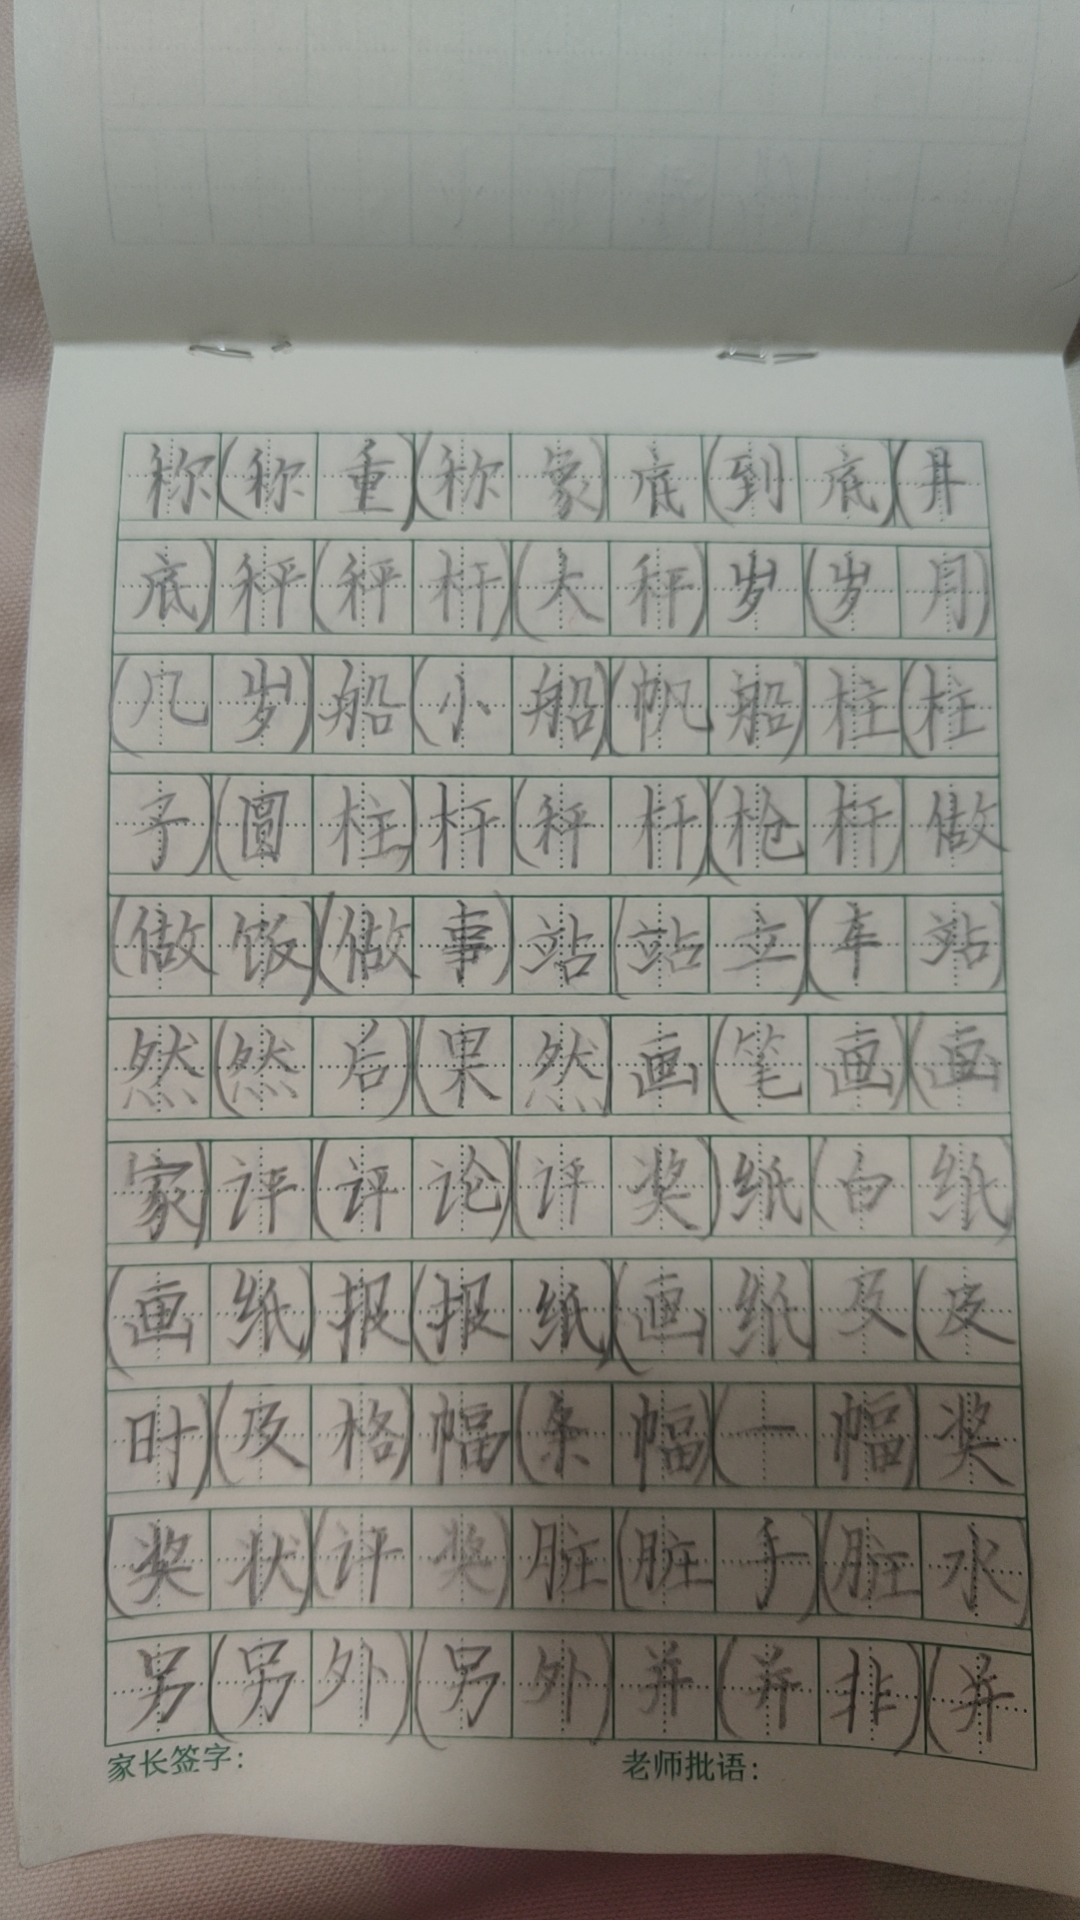 称(称重)(称象)底(到底)(井
底)秤(秤杆)(大秤)岁(岁月)
(几岁)船(小船)(帆船)柱(柱
子)(圆柱)杆(秤杆)(枪杆)做
(做饭)(做事)站(站立)(车站)
然(然后)(果然)画(笔画)(画
家)评(评论)(评奖)纸(白纸)
(画纸)报(报纸)(画纸)及(及
时)(及格)幅(条幅)(一幅)奖
(奖状)(评奖)脏(脏手)(脏水)
另(另外)(另外)并(并非)(并
家长签字: 老师批语: